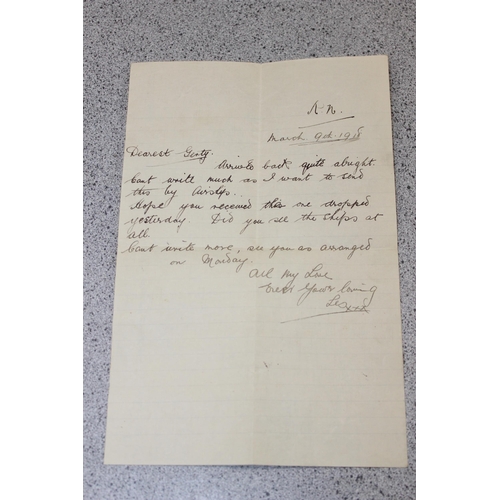 March 9th 1918
Dearest Gerty.
Arrived back quite alright
Cant write much as I want to send
this by Airship.
Hope you received the one dropped
yesterday. Did you see the ships at
all.
Cant write more, see you as arranged
on Monday.
All My Love
Ever Your loving